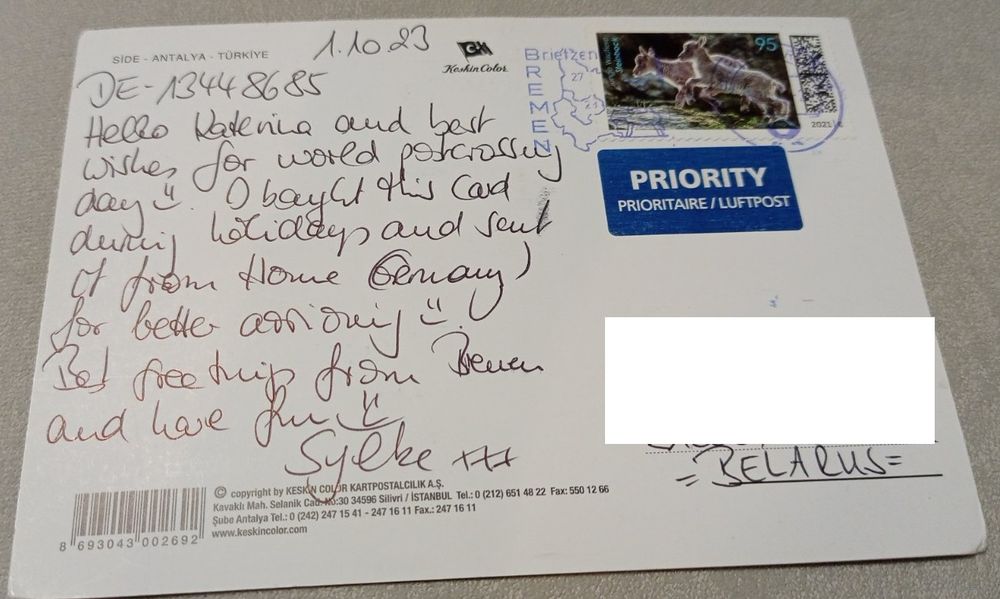 SİDE - ANTALYA - TÜRKİYE
1.10.23
GK
Keskin Color
DE-13448685
Hello Katerina and best
wishes for world postcrossing
day Ü. I bought this Card
during holidays and sent
it from Home (Germany)
for better arriving Ü.
Best greetings from Bremen
and have fun Ü
Sylke xxx
Briefzen
BREMEN
27
21
Steinbock
95
2021
PRIORITY
PRIORITAIRE / LUFTPOST
=BELARUS=
8 693043 002692
© copyright by KESKİN COLOR KARTPOSTALCILIK A.Ş.
Kavaklı Mah. Selanik Cad. No:30 34596 Silivri / İSTANBUL Tel.: 0 (212) 651 48 22 Fax: 550 12 66
Şube Antalya Tel.: 0 (242) 247 15 41 - 247 16 11 Fax.: 247 16 11
www.keskincolor.com